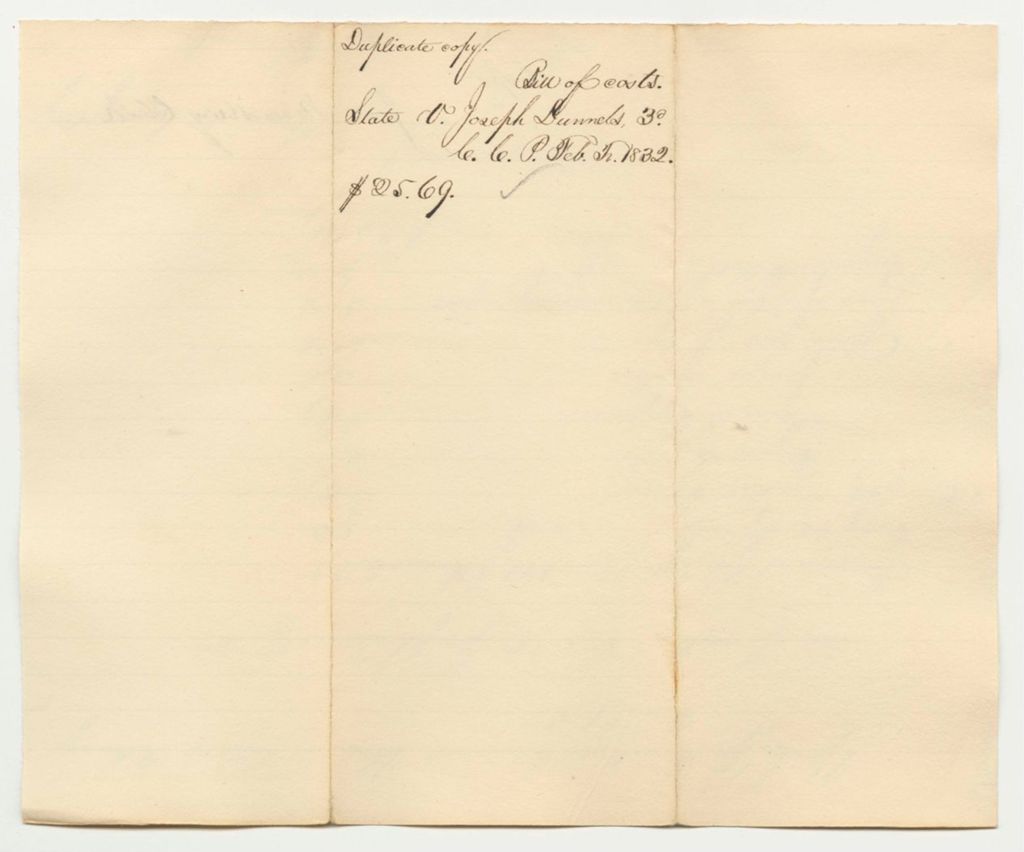 Duplicate copy.
Bill of costs.
State v. Joseph Dunnels, 3d
C. C. P. Feb. Tr. 1832.
$25.69.